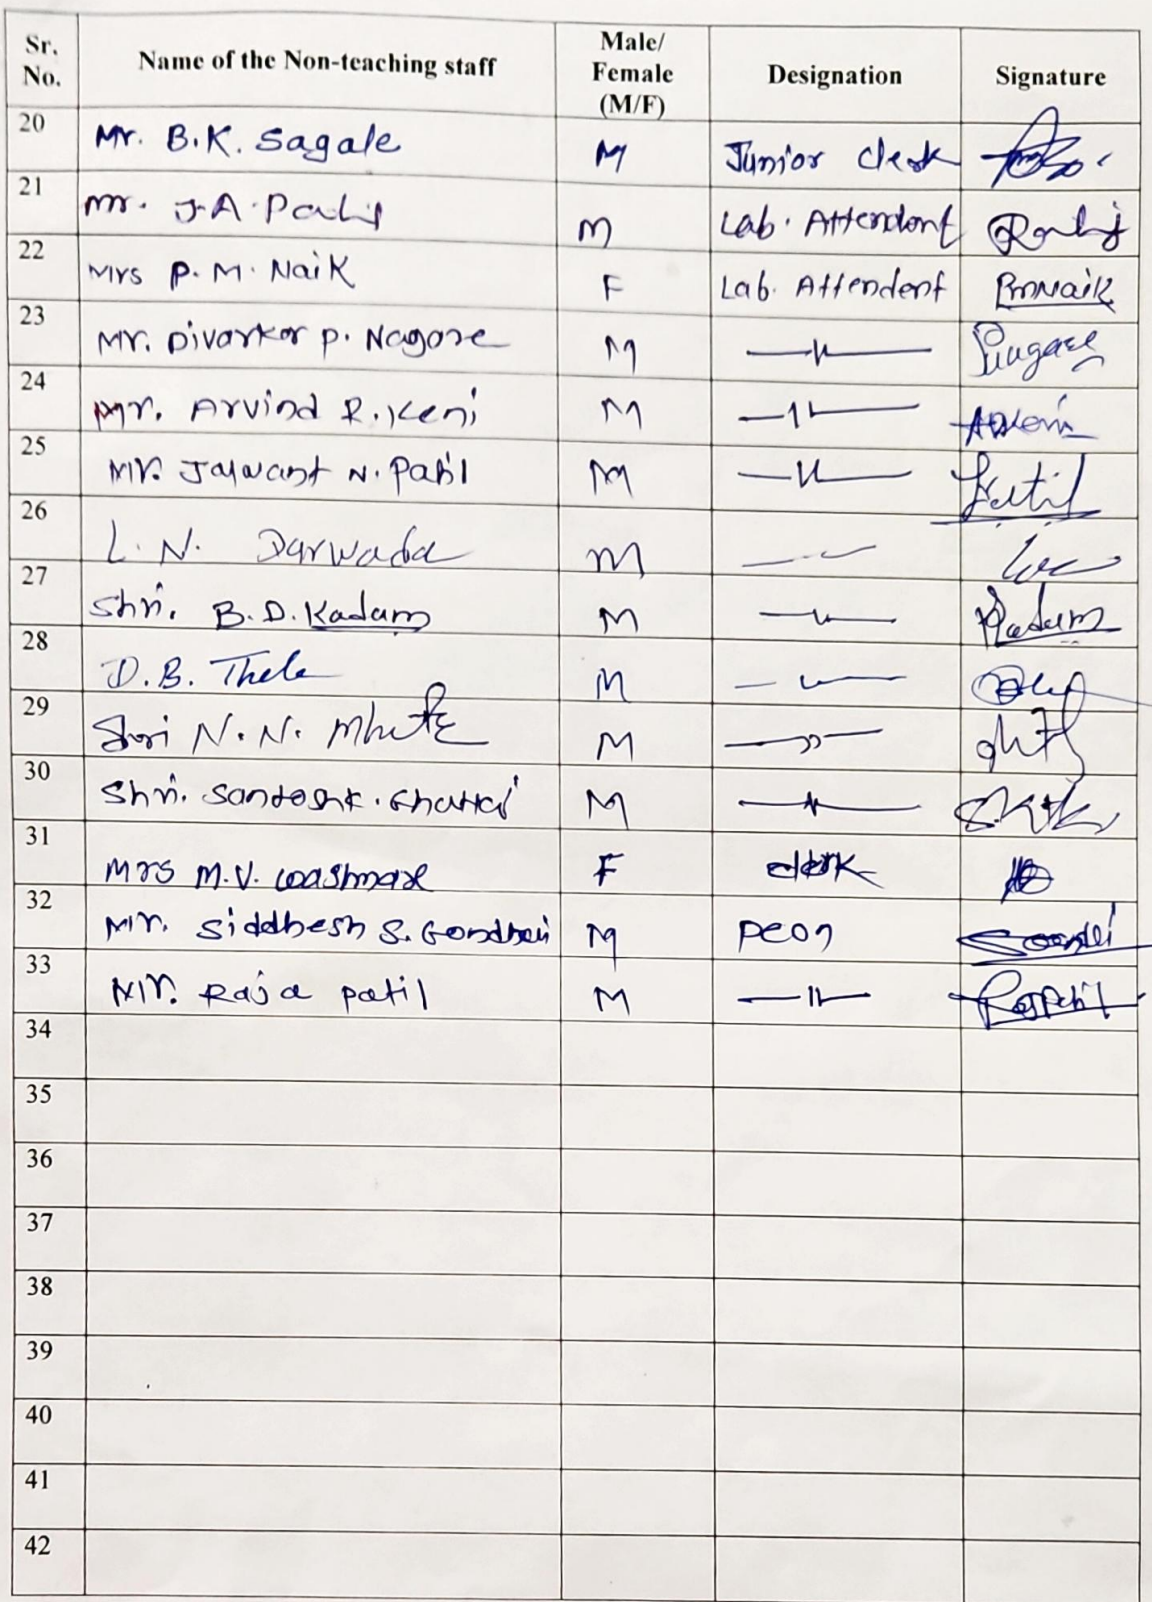 Sr. No. Name of the Non-teaching staff Male/ Female (M/F) Designation Signature
20 Mr. B.K. Sagale M Junior Clerk
21 Mr. J.A. Patil M Lab. Attendent
22 Mrs P. M. Naik F Lab. Attendent PMNaik
23 Mr. Divarkar P. Nagore M —〃—
24 Mr. Arvind R. Keni M —〃—
25 Mr. Jaywant N. Patil M —〃— Patil
26 L. N. Darwada M —〃—
27 Shri. B.D. Kadam M —〃— Kadam
28 D.B. Thele M —〃—
29 Shri N. N. Mhatre M —〃—
30 Shri. Santosh K. M —〃—
31 Mrs M.V. F clerk
32 Mr. Siddhesh S. Gondhali M peon
33 Mr. Raja Patil M —〃—
34
35
36
37
38
39
40
41
42